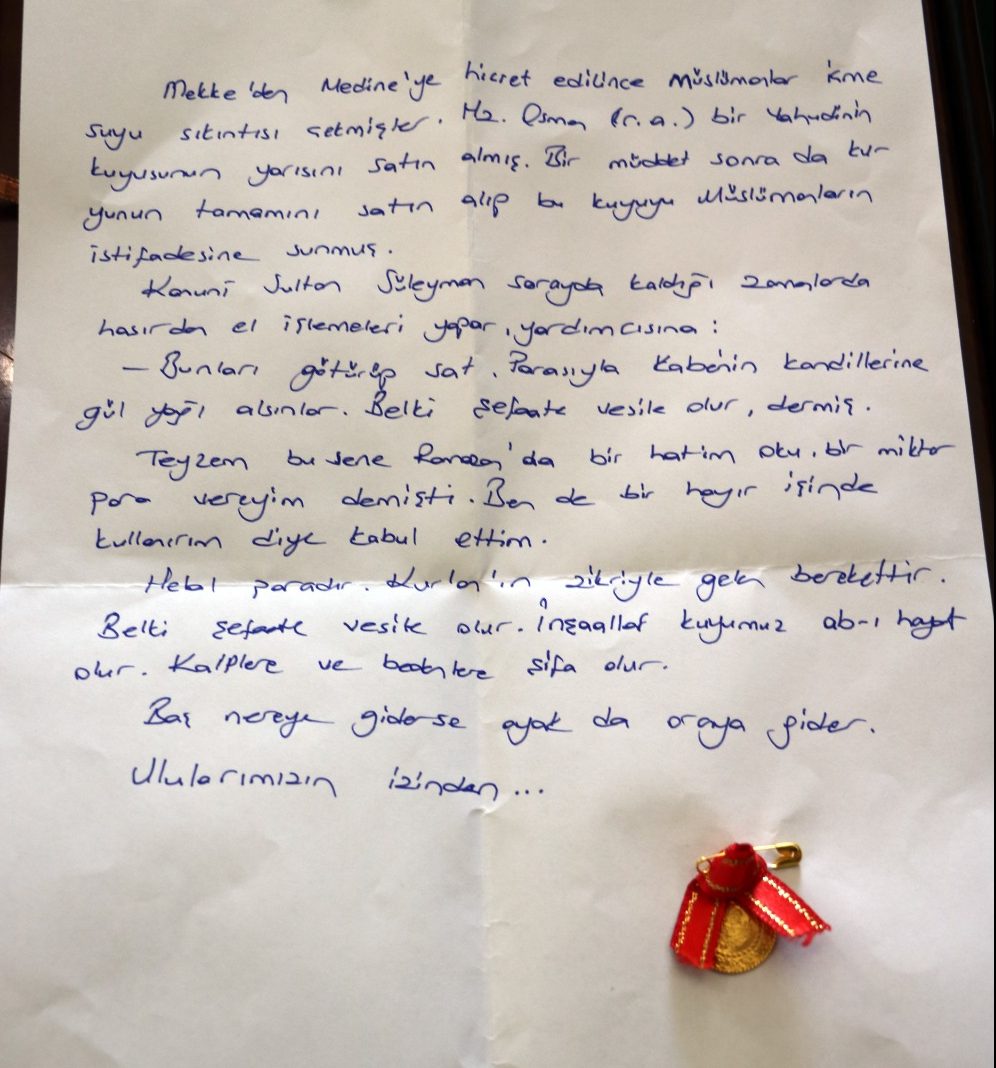 Mekke'den Medine'ye hicret edilince Müslümanlar içme
suyu sıkıntısı çekmişler. Hz. Osman (r.a.) bir Yahudinin
kuyusunun yarısını satın almış. Bir müddet sonra da ku-
yunun tamamını satın alıp bu kuyuyu Müslümanların
istifadesine sunmuş.
Kanunî Sultan Süleyman sarayda kaldığı zamanlarda
hasırdan el işlemeleri yapar, yardımcısına:
— Bunları götürüp sat. Parasıyla Kabe'nin kandillerine
gül yağı alsınlar. Belki şefaate vesile olur, dermiş.
Teyzem bu sene Ramazan'da bir hatim oku, bir miktar
para vereyim demişti. Ben de bir hayır işinde
kullanırım diye kabul ettim.
Helal paradır. Kur'an'ın zikriyle gelen berekettir.
Belki şefaate vesile olur. İnşaallah kuyumuz ab-ı hayat
olur. Kalplere ve bedenlere şifa olur.
Baş nereye giderse ayak da oraya gider.
Ulularımızın izinden...